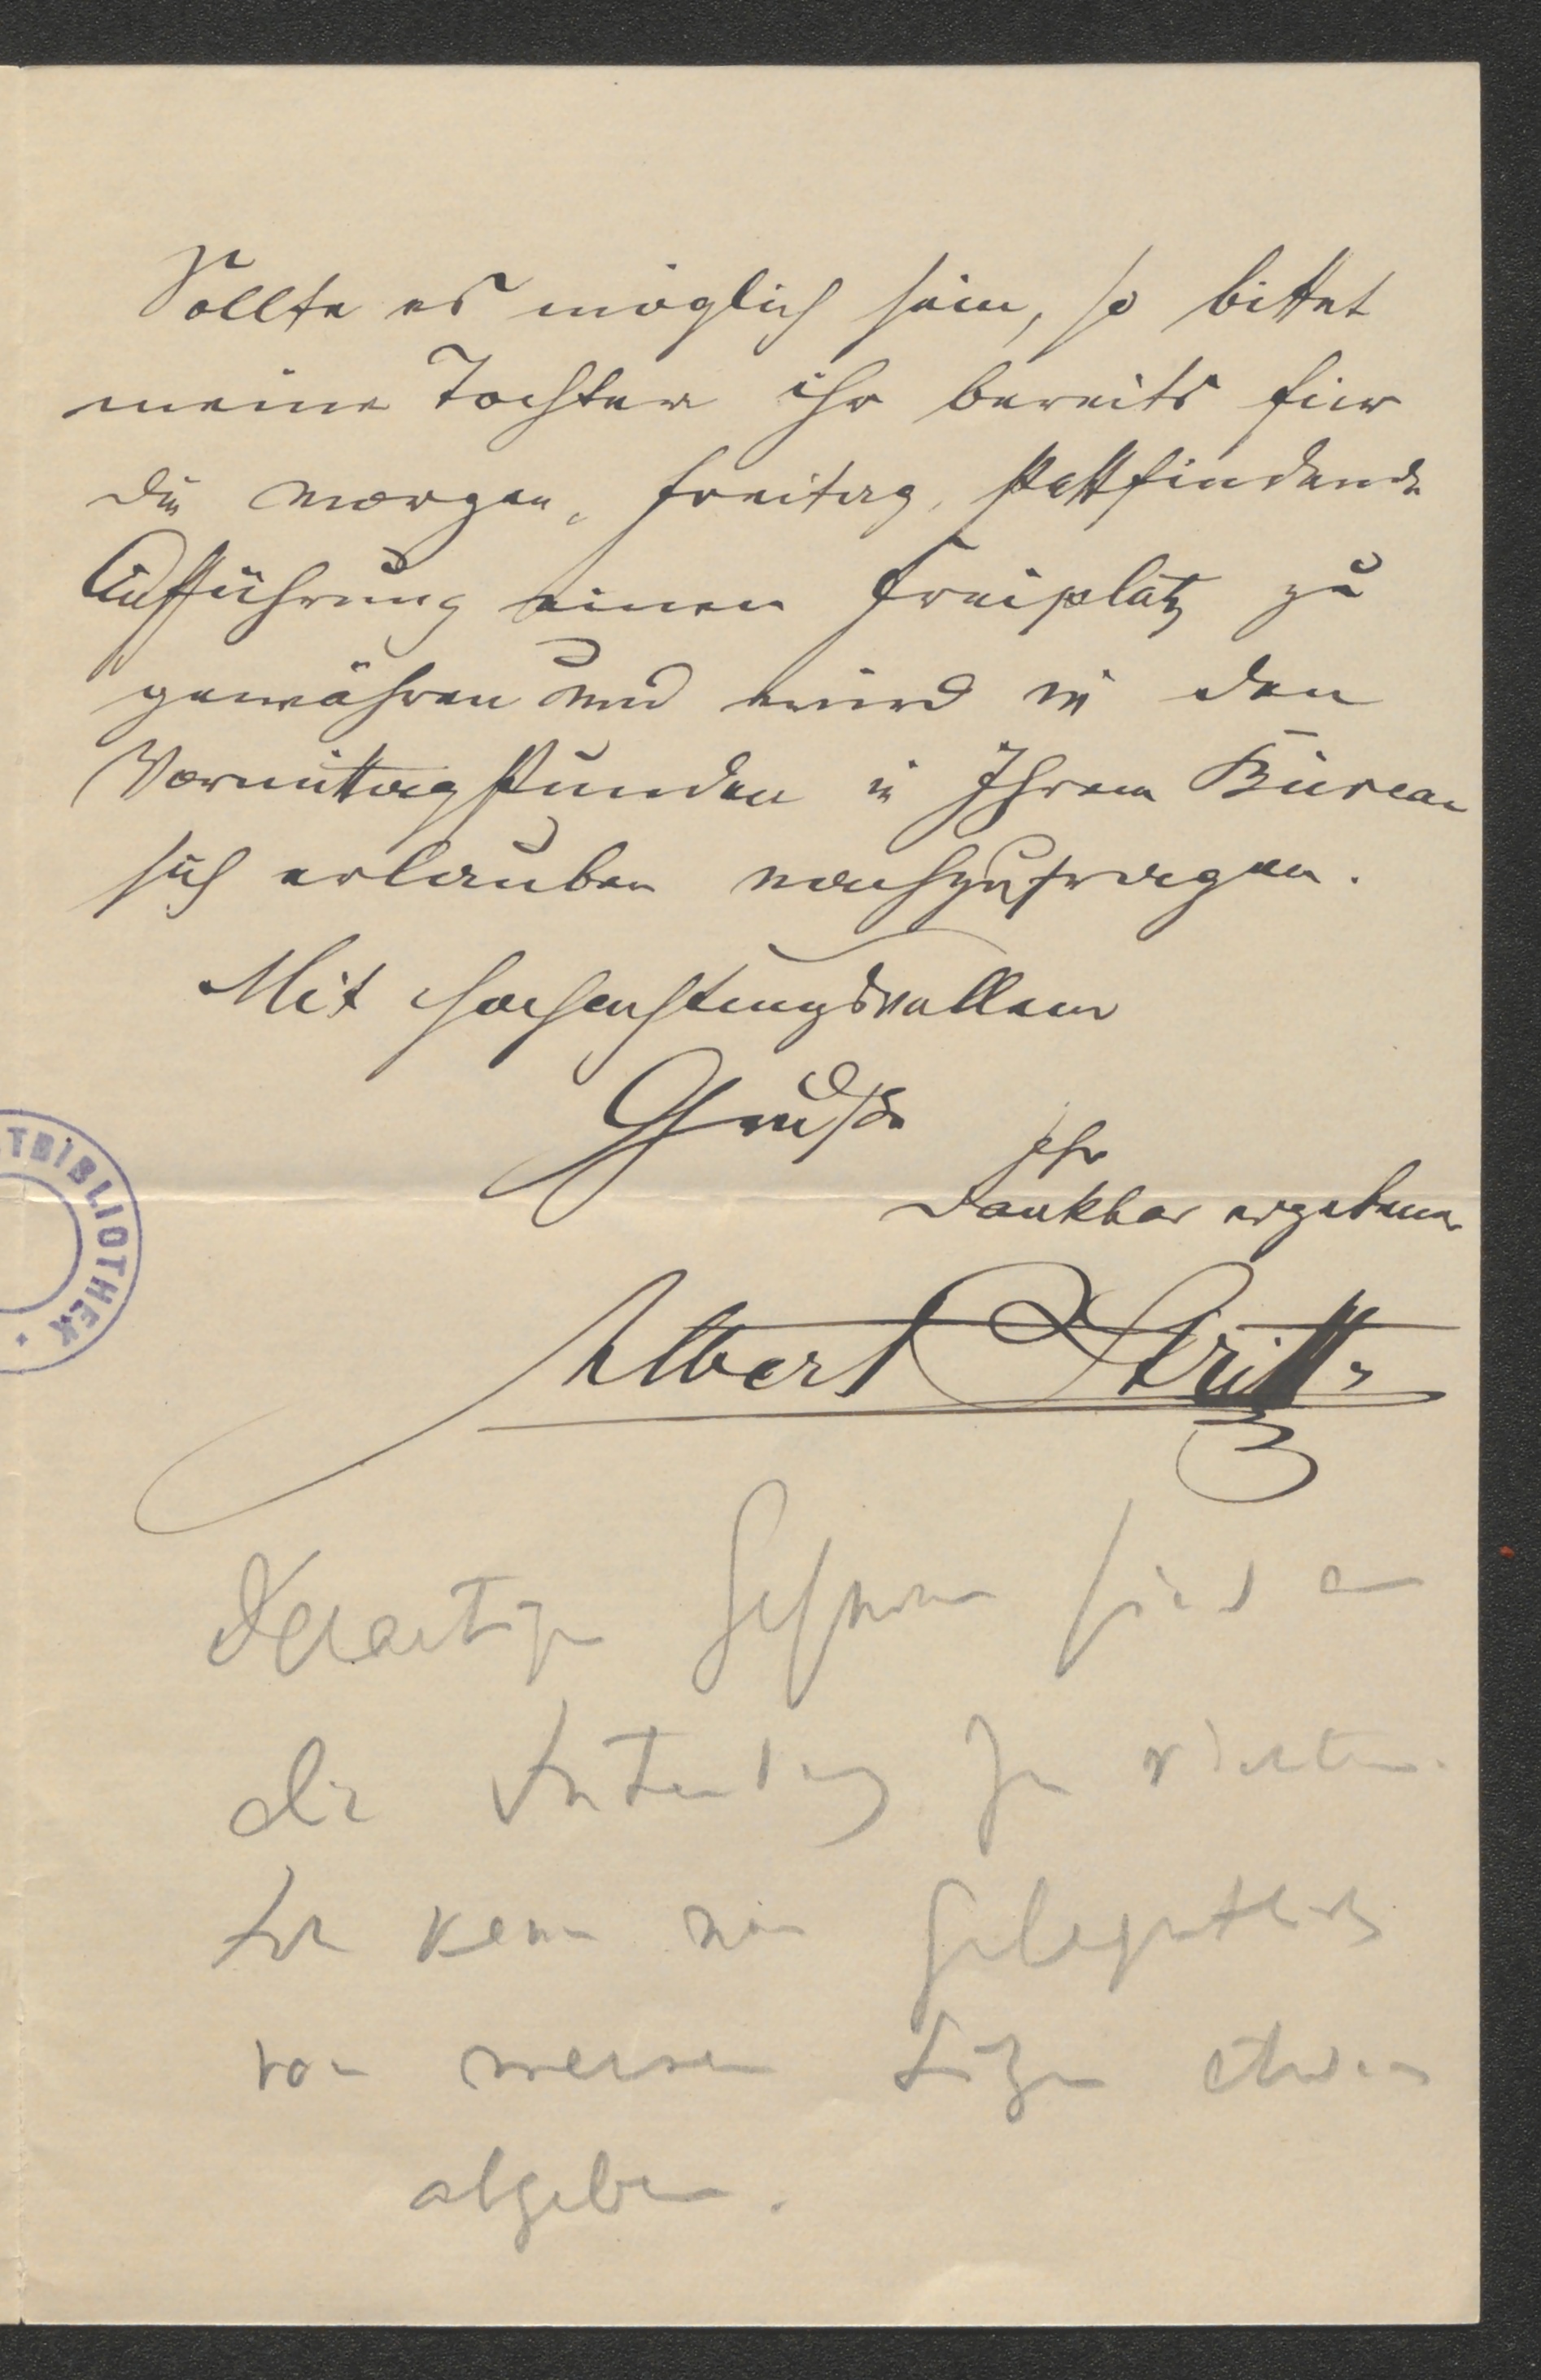 Sollte es möglich sein, so bittet
meine Tochter ihr bereits für
die morgen, Freitag, stattfindende
Aufführung einen Freiplatz zu
gewähren und wird in den
Vormittagstunden in Ihrem Büreau
sich erlauben nachzufragen.
Mit hochachtungsvollem
Gruße
Ihr
dankbar ergebener
Albert Stritt
TBIBLIOTHEK
Derartige Gesuche sind an
die Intendanz zu richten.
Ich kann nur gelegentlich
von meinen Sitzen etwas
abgeben.